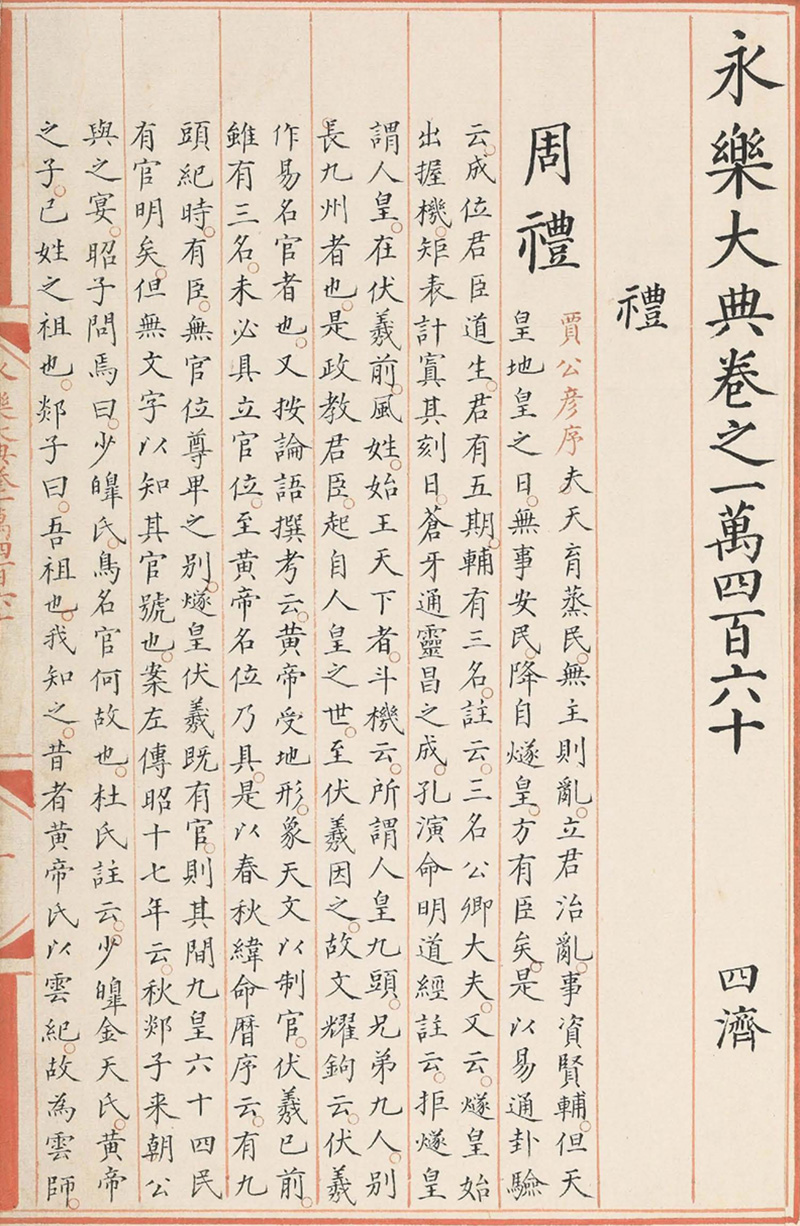 永樂大典卷之一萬四百六十 四濟
禮
周禮
賈公彦序夫天育蒸民。無主則亂。立君治亂。事資賢輔。但天
皇地皇之日。無事安民。降自燧皇。方有臣矣。是以易通卦驗
云。成位君臣道生。君有五期。輔有三名。註云。三名公卿大夫。又云。燧皇始
出握機。矩表計寘其刻日。蒼牙通靈昌之成。孔演命明道經註云。拒燧皇
謂人皇。在伏羲前。風姓。始王天下者。斗機云。所謂人皇九頭。兄弟九人。別
長九州者也。是政教君臣。起自人皇之世。至伏羲因之。故文耀鉤云。伏羲
作易名官者也。又按論語撰考云。黄帝受地形。象天文以制官。伏羲已前。
雖有三名。未必具立官位。至黄帝名位乃具。是以春秋緯命暦序云。有九
頭紀時。有臣。無官位尊卑之別。燧皇伏羲既有官。則其間九皇六十四民
有官明矣。但無文字以知其官號也。案左傳昭十七年云。秋郯子来朝公
與之宴。昭子問焉。曰。少皡氏。鳥名官何故也。杜氏註云。少皡金天氏。黄帝
之子。已姓之祖也。郯子曰。吾祖也。我知之。昔者黄帝氏以雲紀。故為雲師。